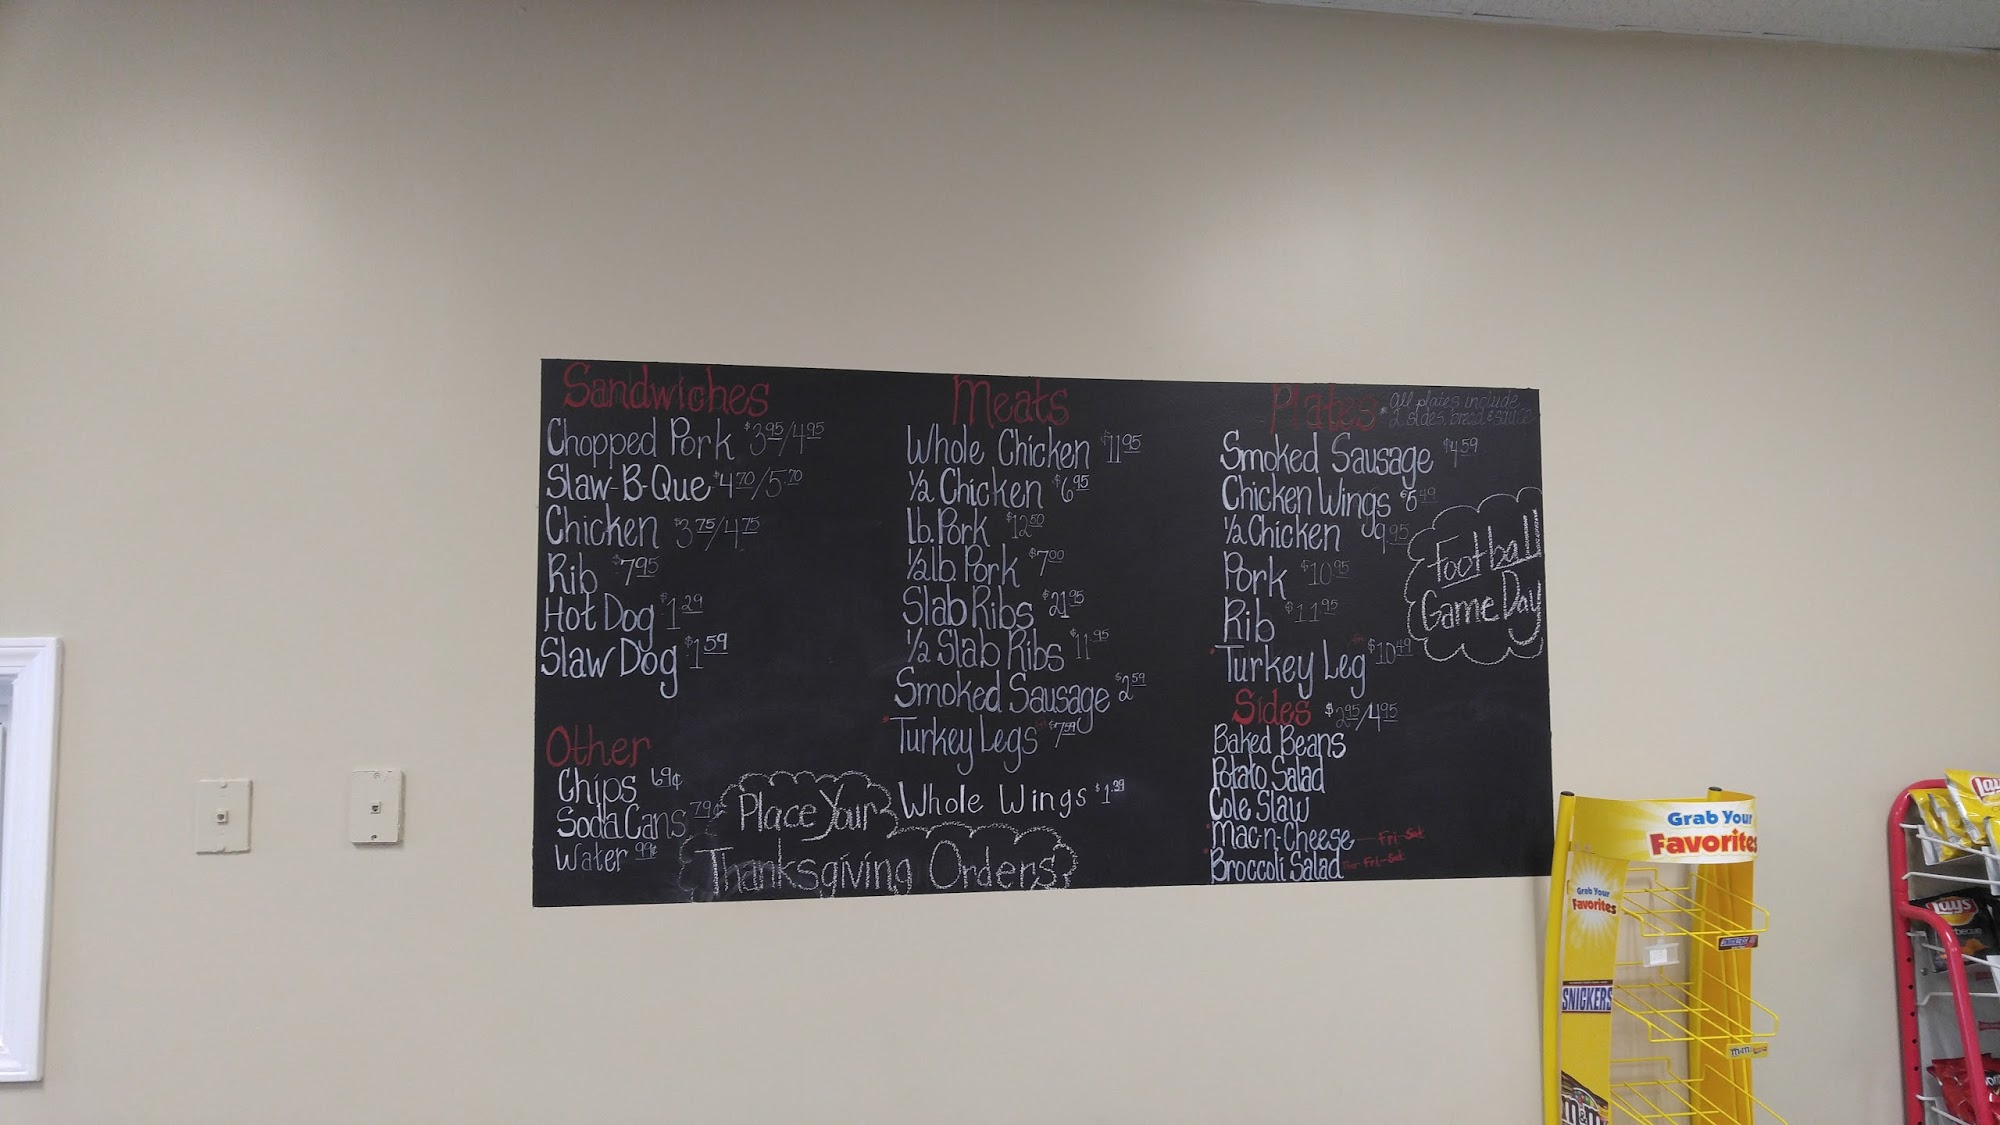 Sandwiches
Chopped Pork $3.95/4.95
Slaw-B-Que $4.70/5.70
Chicken $3.75/4.75
Rib $7.95
Hot Dog $1.29
Slaw Dog $1.59
Other
Chips 69¢
Soda Cans 79¢
Water 99¢
Place Your
Thanksgiving Orders
Meats
Whole Chicken $11.95
1/2 Chicken $6.95
lb. Pork $12.50
1/2 lb. Pork $7.00
Slab Ribs $21.95
1/2 Slab Ribs $11.95
Smoked Sausage $2.59
*Turkey Legs $7.59
Whole Wings $1.39
Plates *All plates include
2 sides, bread & sauce
Smoked Sausage $4.59
Chicken Wings $5.49
1/2 Chicken 9.95
Pork $10.95
Rib $11.95
*Turkey Leg $10.49
Football
Game Day
Sides $2.95/4.95
Baked Beans
Potato Salad
Cole Slaw
*Mac-n-Cheese Fri-Sat
*Broccoli Salad Fri-Sat
Grab Your
Favorites
Grab Your
Favorites
SNICKERS
m&m
m&m
Lay's
Lay's